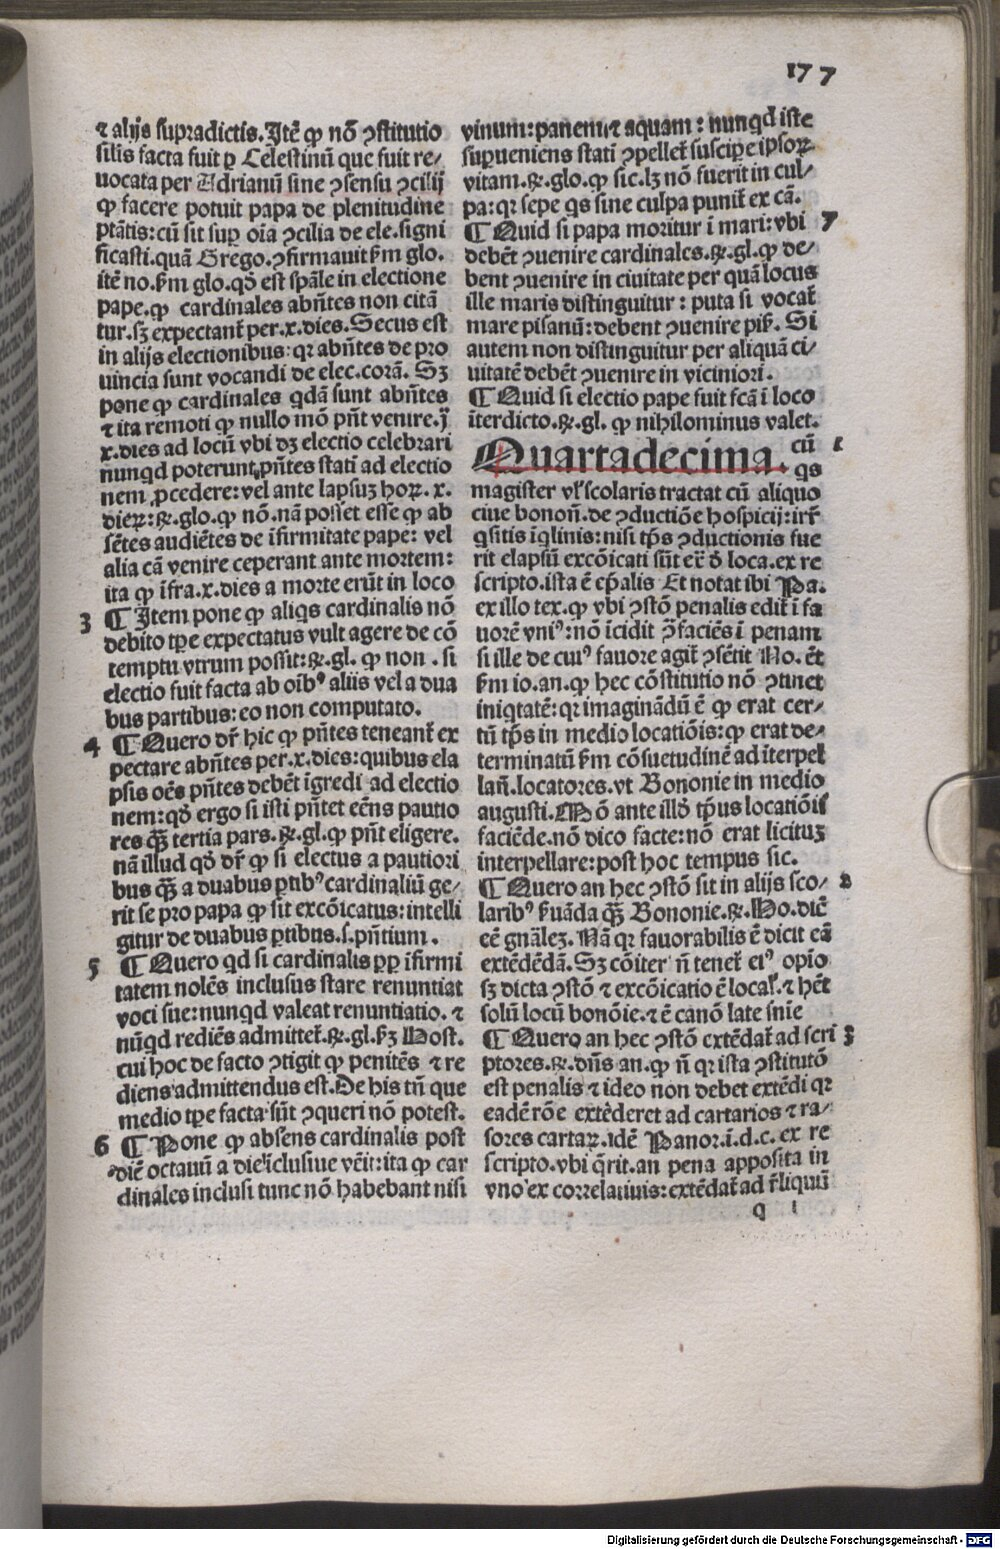 177
⁊ alijs supradictis. Itē ꝙ nō ꝯstitutio
silis facta fuit ꝑ Celestinū que fuit re/
uocata per Adrianū sine ꝯsensu ꝯcilij
ꝙ facere potuit papa de plenitudine
ptātis: cū sit suꝑ oīa ꝯcilia de ele. signi
ficasti. quā Grego. ꝯfirmauit ẜm glo.
itē no. ẜm glo. qđ est spāle in electione
pape. ꝙ cardinales abn̄tes non citā
tur. sꝫ expectant̄ per. x. dies. Secus est
in alijs electionibus: qꝛ abn̄tes de pro
uincia sunt vocandi de elec. corā. Sꝫ
pone ꝙ cardinales qdā sunt abn̄tes
⁊ ita remoti ꝙ nullo mō pn̄t venire. ij
x. dies ad locū vbi dꝫ electio celebrari
nunqd poterunt pn̄tes statī ad electio
nem ꝓcedere: vel ante lapsuꝫ hoꝝ. x.
dieꝝ: ꝶ. glo. ꝙ nō. nā posset esse ꝙ ab
sētes audiētes de īfirmitate pape: vel
alia cā venire ceperant ante mortem:
ita ꝙ īfra. x. dies a morte erūt in loco
3 ¶ Item pone ꝙ aliqs cardinalis nō
debito tꝑe expectatus vult agere de cō
temptu vtrum possit: ꝶ. gl. ꝙ non. si
electio fuit facta ab oībꝰ aliis vel a dua
bus partibus: eo non computato.
4 ¶ Quero dr̄ hic ꝙ pn̄tes teneant̄ ex
pectare abn̄tes per. x. dies: quibus ela
psis oēs pn̄tes debēt īgredi ad electio
nem: qđ ergo si isti pn̄tet eēns pautio
res ꝙ̄ tertia pars. ꝶ. gl. ꝙ pn̄t eligere.
nā illud qđ dr̄ ꝙ si electus a pautiori
bus ꝙ̄ a duabus ꝑtibꝰ cardinaliū ge/
rit se pro papa ꝙ sit excōicatus: intelli
gitur de duabus ꝑtibus. s. pn̄tium.
5 ¶ Quero qd si cardinalis ꝓpꝑ īfirmi
tatem nolēs inclusus stare renuntiat
voci sue: nunqd valeat renuntiatio. ⁊
nūqd rediēs admittet̄. ꝶ. gl. ẜꝫ Host.
cui hoc de facto ꝯtigit ꝙ penitēs ⁊ re
diens admittendus est. De his tn̄ que
medio tꝑe facta sūt ꝯqueri nō potest.
6 ¶ Pone ꝙ absens cardinalis post
diē octauū a die īclusiue vēit: ita ꝙ car
dinales inclusi tunc nō habebant nisi
vinum: panem ⁊ aquam: nunqd iste
suꝑueniens statī ꝯpellet̄ suscipe ipsoꝝ
vitam. ꝶ. glo. ꝙ sic. lꝫ nō fuerit in cul/
pa: qꝛ sepe qs sine culpa punit̄ ex cā.
¶ Quid si papa moritur ī mari: vbi 7
debēt ꝯuenire cardinales. ꝶ. gl. ꝙ de/
bent ꝯuenire in ciuitate per quā locus
ille maris distinguitur: puta si vocat̄
mare pisanū: debent ꝯuenire pis̄. Si
autem non distinguitur per aliquā ci/
uitatē debēt ꝯuenire in viciniori.
¶ Quid si electio pape fuit fcā ī loco
īterdicto. ꝶ. gl. ꝙ nihilominus valet.
Quartadecima. cū 1
qs
magister vl̓ scolaris tractat cū aliquo
ciue bonoñ. de ꝯductiōe hospicij: irr̄
qsitis īqlinis: nisi tp̄s ꝯductionis fue
rit elapsū excōicati sūt eē đ loca. ex re
scripto. ista ē ep̄alis Et notat ibi Pa.
ex illo tex. ꝙ vbi ꝯstō penalis edit̄ ī fa
uorē vniꝰ: nō īcidit ꝯ̄faciēs ī penam
si ille de cuiꝰ fauore agit̄ ꝯsētit No. ēt
ẜm io. an. ꝙ hec cōstitutio nō ꝯtinet
iniqtatē: qꝛ imaginādū ē ꝙ erat cer/
tū tp̄s in medio locatiōis: ꝙ erat de/
terminatū ẜm cōsuetudinē ad īterpel
lañ. locatores. vt Bononie in medio
augusti. Mō ante illđ tp̄us locatiōīs
faciēde. nō dico facte: nō erat licituꝫ
interpellare: post hoc tempus sic.
¶ Quero an hec ꝯstō sit in alijs sco/ 2
laribꝰ ẜuāda ꝙ̄ Bononie. ꝶ. Ho. dicē
eē gnālez. Nā qꝛ fauorabilis ē dicit eā
extēdēdā. Sꝫ cōiter n̄ tenet̄ eiꝰ opio
sꝫ dicta ꝯstō ⁊ excōicatio ē local̓. ⁊ hēt
solū locū bonōie. ⁊ ē canō late sn̄ie
¶ Quero an hec ꝯstō extēdat̄ ad scri 3
ptores. ꝶ. dn̄s an. ꝙ n̄ qꝛ ista ꝯstitutō
est penalis ⁊ ideo non debet extēdi qꝛ
eadē rōe extēderet ad cartarios ⁊ ra/
sores cartaꝝ. idē Panor. ī. d. c. ex re
scripto. vbi q̄rit. an pena apposita in
vno ex correlatiuis: extēdat̄ ad r̄liquū
q 1
Digitalisierung gefördert durch die Deutsche Forschungsgemeinschaft - DFG